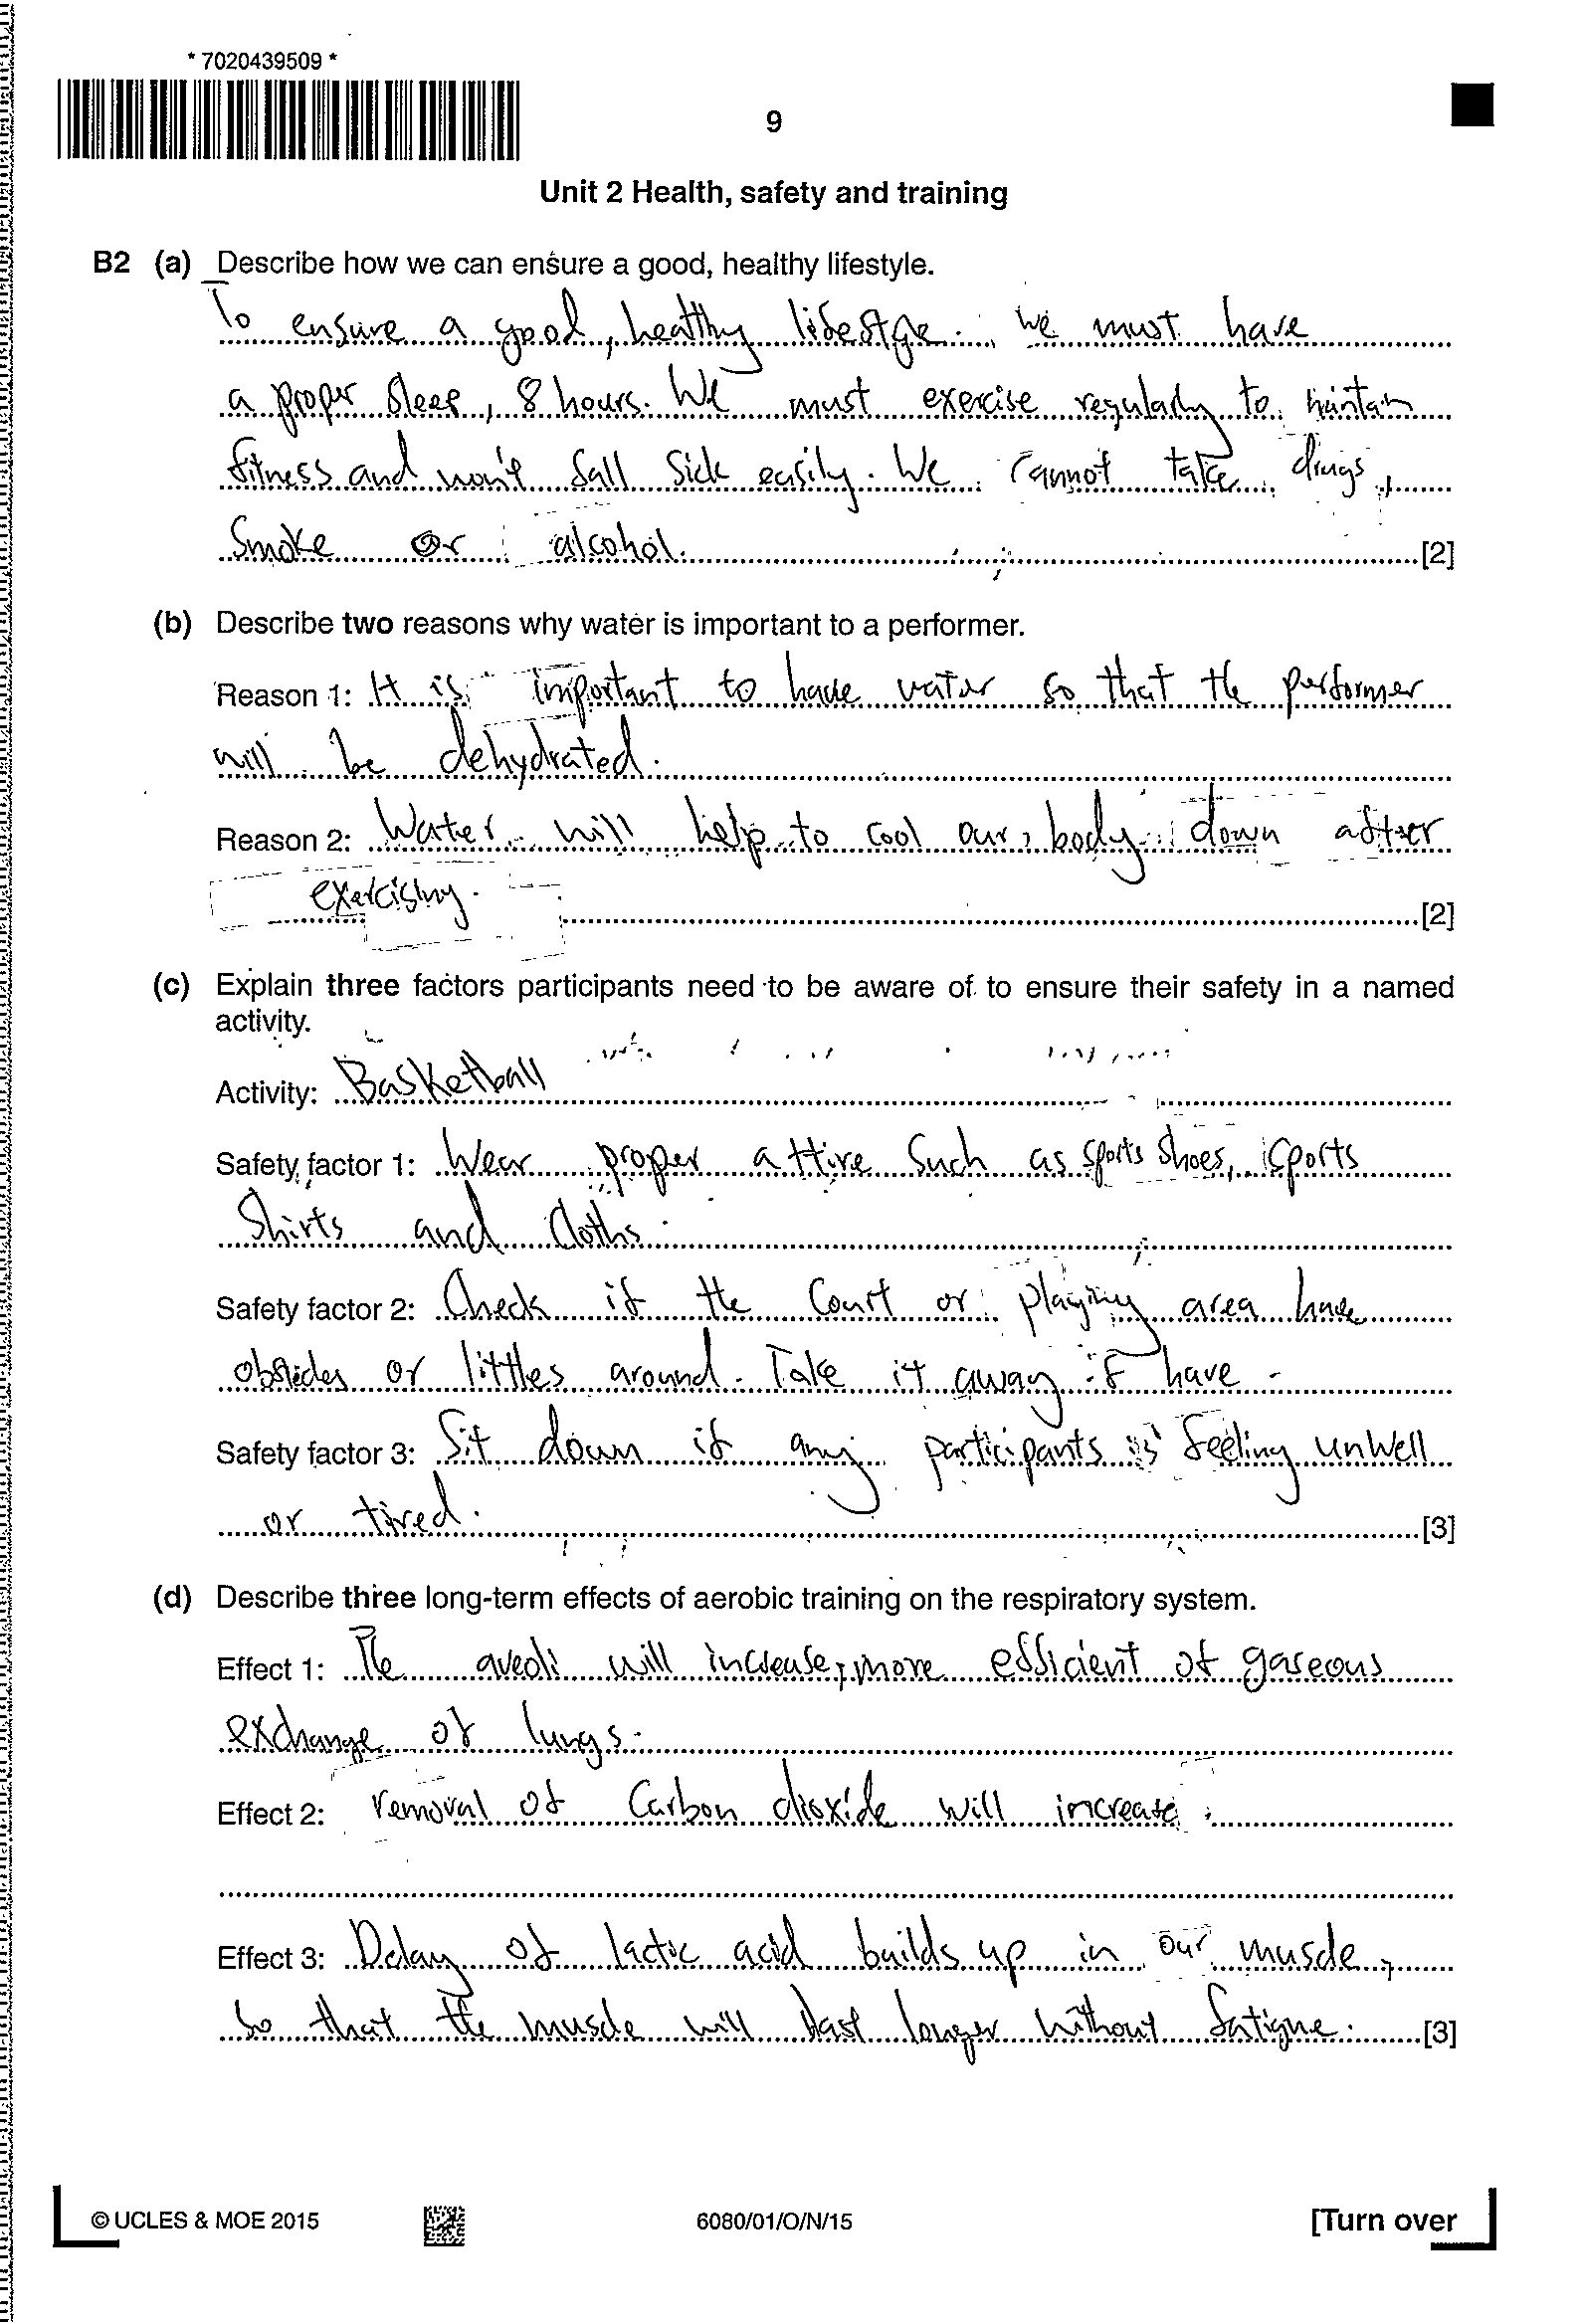 * 7020439509 *
9
Unit 2 Health, safety and training
B2 (a) Describe how we can ensure a good, healthy lifestyle.
To ensure a good, healthy lifestyle. We must have
a proper sleep, 8 hours. We must exercise regularly to
fitness and won't fall sick easily. We cannot take drugs,
smoke or alcohol. [2]
(b) Describe two reasons why water is important to a performer.
Reason 1: It is important to have water so that the performer
will be dehydrated.
Reason 2: Water will help to cool our body down after
exercising. [2]
(c) Explain three factors participants need to be aware of to ensure their safety in a named
activity.
Activity: Basketball
Safety factor 1: Wear proper attire such as sports shoes, sports
shirts and cloths.
Safety factor 2: Check if the court or playing area have
or littles around. Take it away if have.
Safety factor 3: Sit down if any participants is feeling unwell
or tired. [3]
(d) Describe three long-term effects of aerobic training on the respiratory system.
Effect 1: The aveoli will increase, more efficient of gaseous
exchange of lungs.
Effect 2: removal of Carbon dioxide will increase.
Effect 3: Delay of lactic acid builds up in our muscle,
so that the muscle will last longer without fatigue. [3]
© UCLES & MOE 2015
6080/01/O/N/15
[Turn over